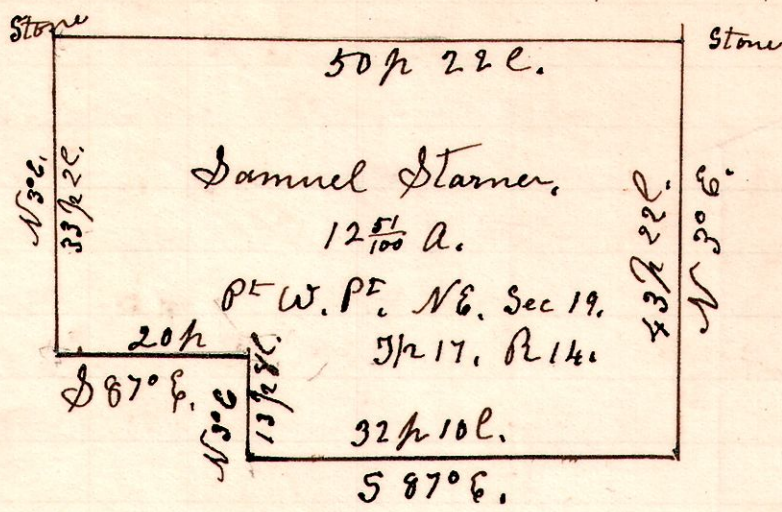 Stone
Stone
50p 22l.
N 3° E.
33p 2l.
Samuel Starner.
12 51/100 A.
Pt W. Pt. NE. Sec 19.
Tp 17. R 14.
43p 22l.
N 3° E.
20p
S 87° E.
N 3° E
13p 8l.
32p 10l.
S 87° E.